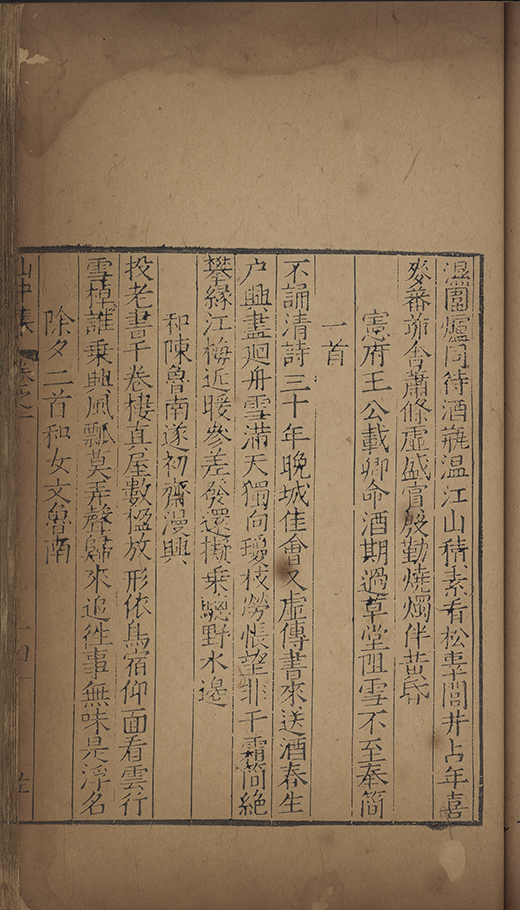 濕圍爐同待酒瓶温江山積素看松㓜閭井占年喜
麥蕃茆舍蕭條虛盛賞殷勤燒燭伴昔昏
憲府王公載卿命酒期過草堂阻雪不至奉簡
一首
不誦清詩三十年晚城佳會又虛傳書來送酒春生
户興盡廻舟雪滿天獨向瓊枝勞悵望非干霜簡絶
攀緣江梅近暖參差發還擬乗驄野水邊
和陳魯南遂初齋漫興
投老書千卷棲直屋數楹放形依鳥宿仰面看雲行
雪棹誰乗興風瓢莫弄聲歸來追徃事無味是浮名
除夕二首和女文魯南
山中集 卷之一